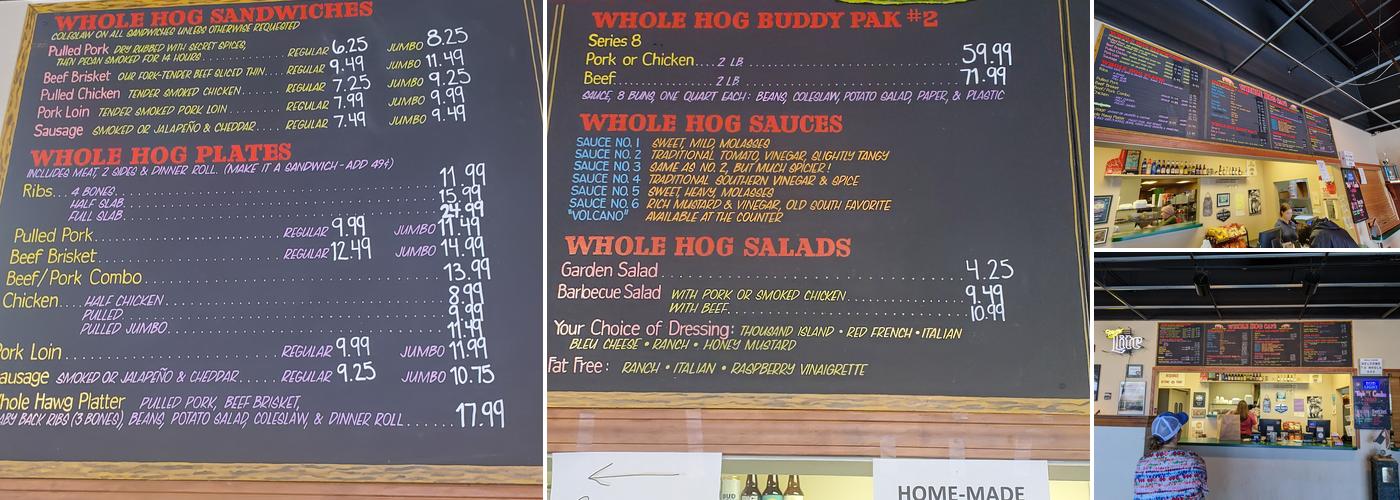 WHOLE HOG SANDWICHES
COLESLAW ON ALL SANDWICHES UNLESS OTHERWISE REQUESTED
Pulled Pork DRY RUBBED WITH SECRET SPICES, THEN PECAN SMOKED FOR 14 HOURS REGULAR 6.25 JUMBO 8.25
Beef Brisket OUR FORK-TENDER BEEF SLICED THIN.... REGULAR 9.49 JUMBO 11.49
Pulled Chicken TENDER SMOKED CHICKEN........ REGULAR 7.25 JUMBO 9.25
Pork Loin TENDER SMOKED PORK LOIN........ REGULAR 7.99 JUMBO 9.99
Sausage SMOKED OR JALAPEÑO & CHEDDAR.... REGULAR 7.49 JUMBO 9.49
WHOLE HOG PLATES
INCLUDES MEAT, 2 SIDES & DINNER ROLL. (MAKE IT A SANDWICH - ADD 49¢)
Ribs... 4 BONES 11.99
HALF SLAB 15.99
FULL SLAB 24.99
Pulled Pork REGULAR 9.99 JUMBO 11.49
Beef Brisket REGULAR 12.49 JUMBO 14.99
Beef/Pork Combo 13.99
Chicken.... HALF CHICKEN 8.99
PULLED 9.99
PULLED JUMBO 11.49
Pork Loin REGULAR 9.99 JUMBO 11.99
ausage SMOKED OR JALAPEÑO & CHEDDAR..... REGULAR 9.25 JUMBO 10.75
hole Hawg Platter PULLED PORK, BEEF BRISKET,
ABY BACK RIBS (3 BONES), BEANS, POTATO SALAD, COLESLAW, & DINNER ROLL...... 17.99
WHOLE HOG BUDDY PAK #2
Series 8
Pork or Chicken.... 2 LB 59.99
Beef 2 LB 71.99
SAUCE, 8 BUNS, ONE QUART EACH: BEANS, COLESLAW, POTATO SALAD, PAPER, & PLASTIC
WHOLE HOG SAUCES
SAUCE NO. 1 SWEET, MILD, MOLASSES
SAUCE NO. 2 TRADITIONAL TOMATO, VINEGAR, SLIGHTLY TANGY
SAUCE NO. 3 SAME AS NO. 2, BUT MUCH SPICIER!
SAUCE NO. 4 TRADITIONAL SOUTHERN VINEGAR & SPICE
SAUCE NO. 5 SWEET, HEAVY, MOLASSES
SAUCE NO. 6 RICH MUSTARD & VINEGAR, OLD SOUTH FAVORITE
"VOLCANO" AVAILABLE AT THE COUNTER
WHOLE HOG SALADS
Garden Salad 4.25
Barbecue Salad WITH PORK OR SMOKED CHICKEN 9.49
WITH BEEF 10.99
Your Choice of Dressing: THOUSAND ISLAND • RED FRENCH • ITALIAN
BLEU CHEESE • RANCH • HONEY MUSTARD
Fat Free: RANCH • ITALIAN • RASPBERRY VINAIGRETTE
HOME-MADE
BUD
Lite